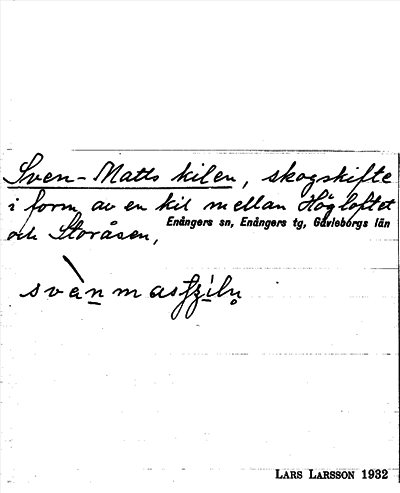 Sven-Matts kilen, skogskifte
i form av en kil mellan Högloftet
Enångers sn, Enångers tg, Gävleborgs län
och Storåsen,
LARS LARSSON 1932